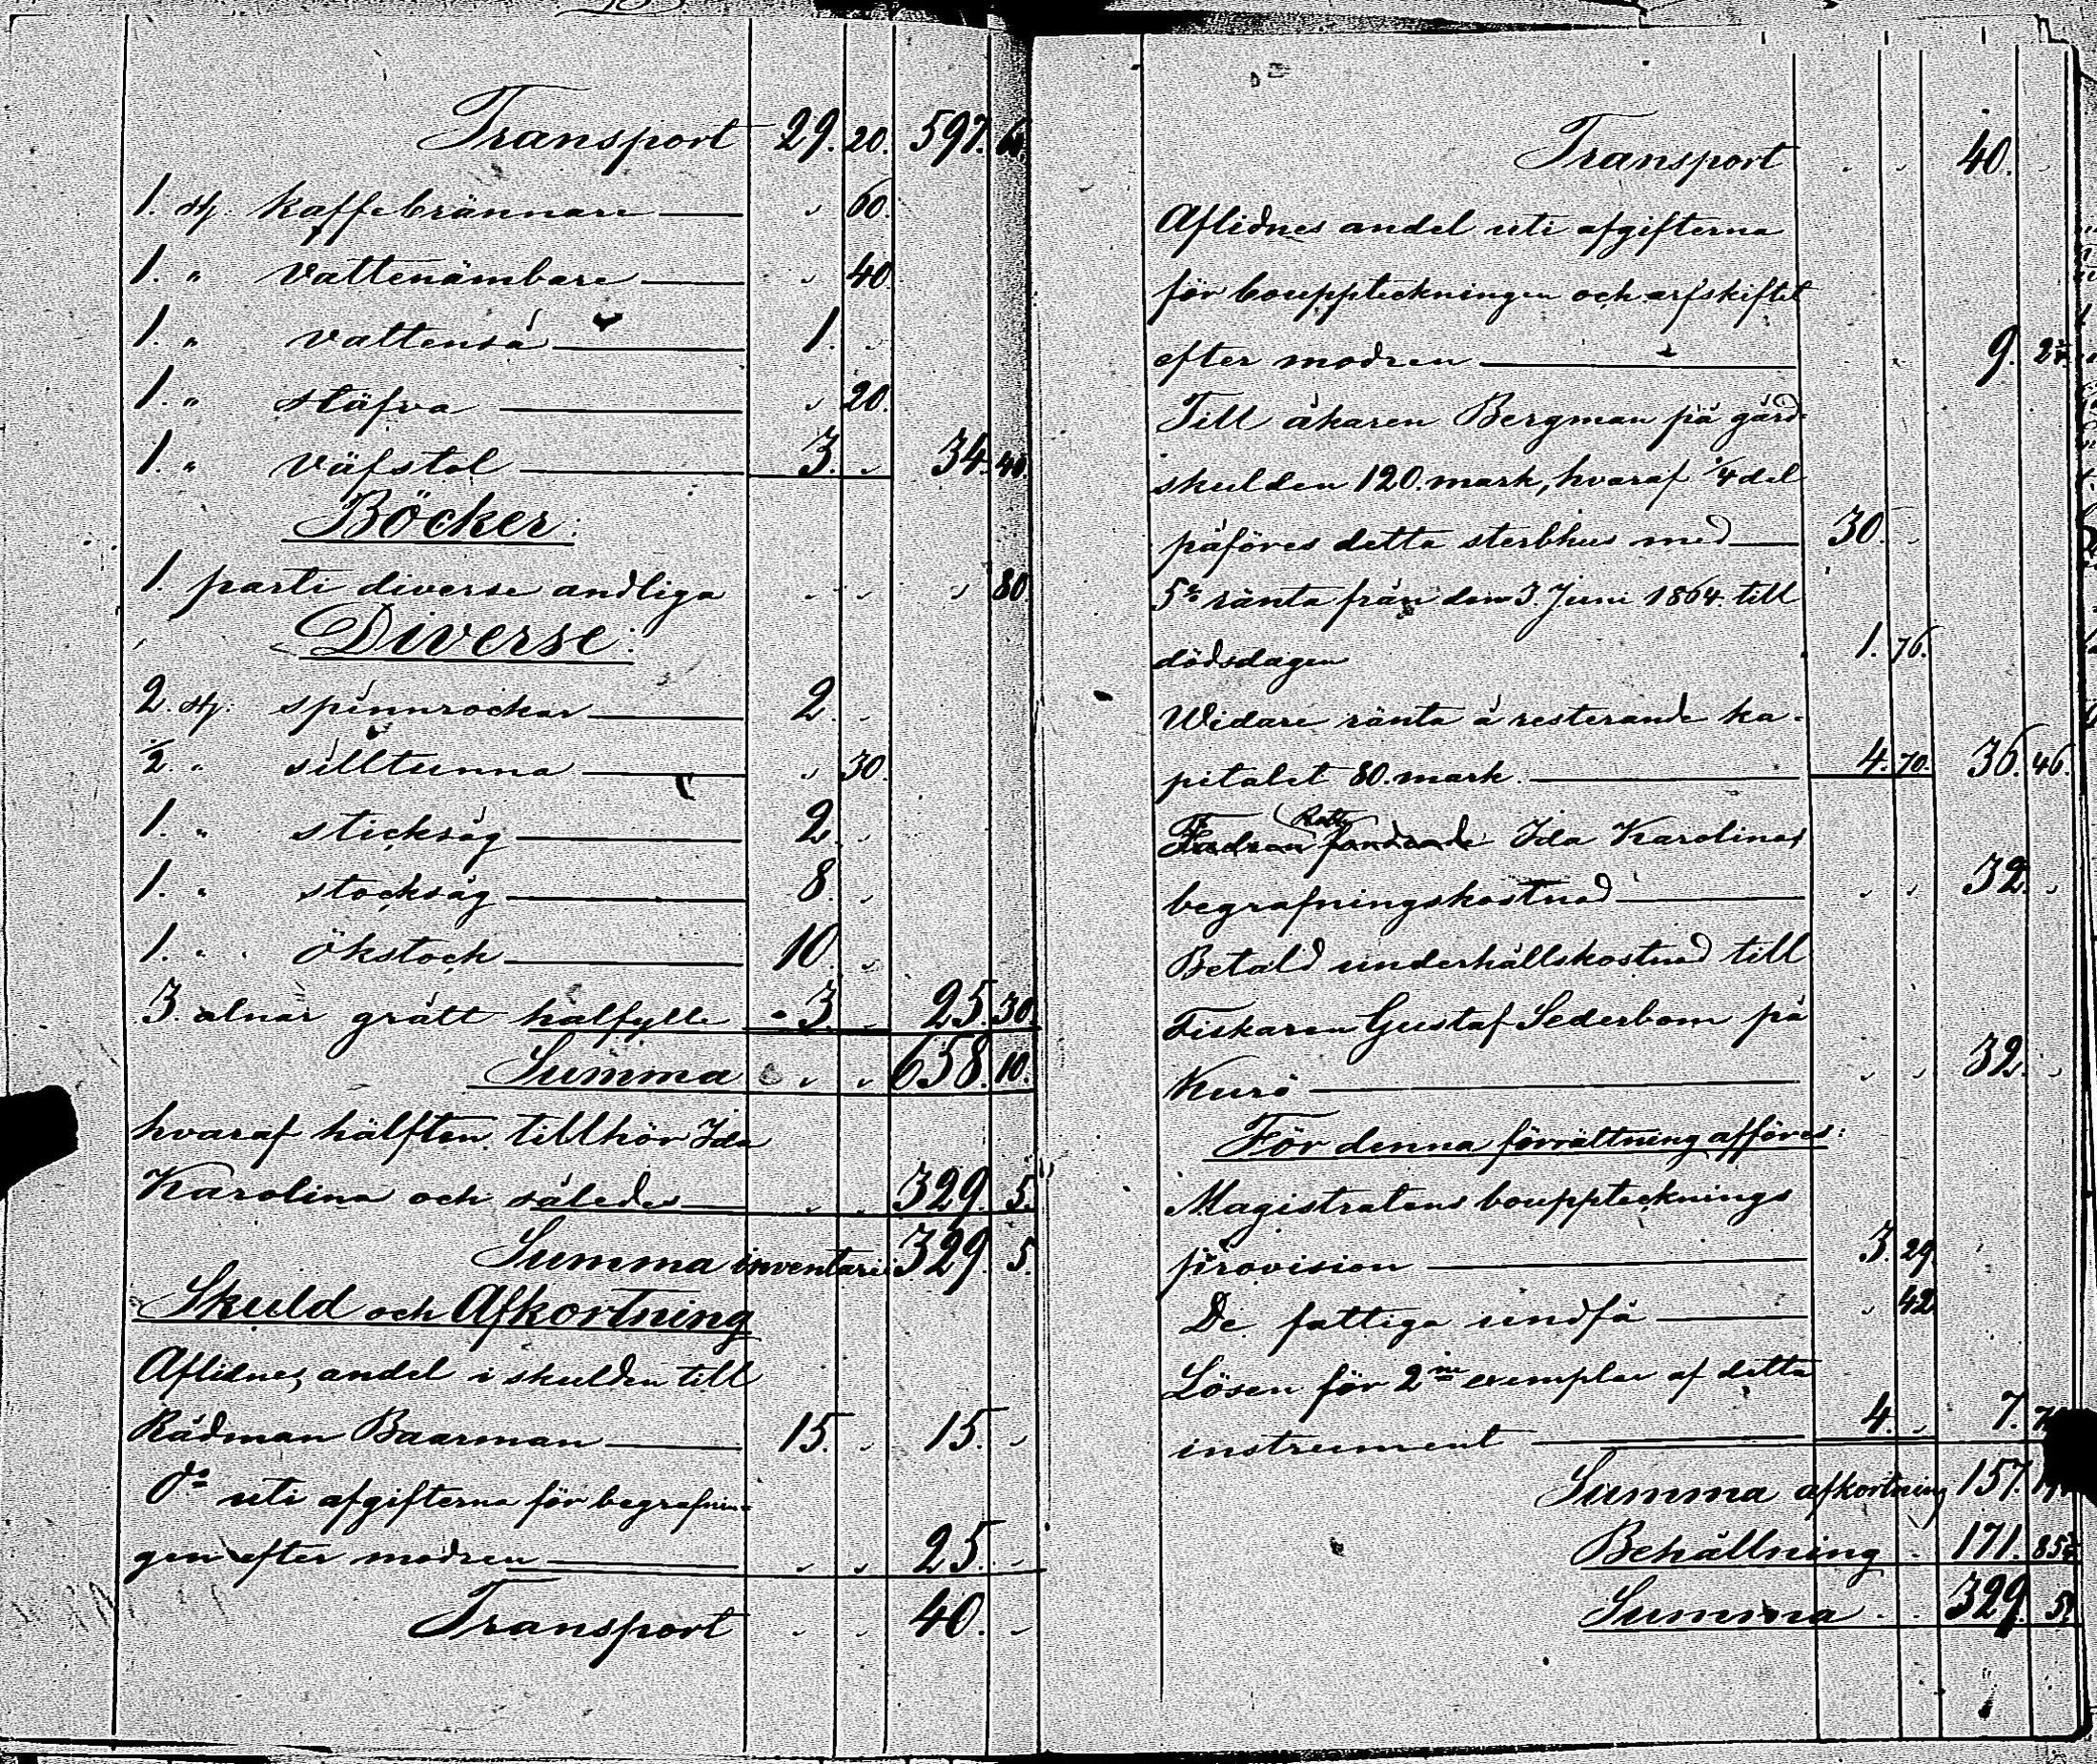 Transport 29. 20. 597. 60
1. st. kaffebrännare — „ 60.
1. „ vattenämbare — „ 40
1. „ vattenså — 1. „
1. „ stäfva — „ 20.
1. „ väfstol — 3. „ 34. 40.
Böcker:
1. parti diverse andliga „ „ „ 80
Diverse:
2. st. spinnrockar — 2. „
1/2. „ silltunna — „ 30.
1. „ sticksåg — 2. „
1. „ stocksåg — 8. „
1. „ ökstock — 10. „
3. alnar grått halfylle 3. „ 25. 30
Summa „ „ 658. 10.
hvaraf hälften tillhör Ida
Karolina och således — „ „ 329. 5.
Summa inventarie 329. 5.
Skuld och Afkortning
Aflidnes andel i skulden till
Rådman Baarman — 15. „ 15. „
do uti afgifterna för begrafnin-
gen efter modren — „ „ 25. „
Transport „ „ 40. „
Transport „ „ 40. „
Aflidnes andel uti afgifterna
för bouppteckningen och arfskiftet
efter modren — 9.
Till åkaren Bergman på gård-
skulden 120. mark, hvaraf 1/4 del
påföres detta sterbhus med — 30. „
5% ränta från den 3. Juni 1864. till
dödsdagen 1. 76.
Widare ränta å resterande ka-
pitalet 80. mark. — 4. 70. 36. 46.
Ida Karolinas
begrafningskostnad — „ „ 32. „
Betald underhållskostnad till
Fiskaren Gustaf Sederbom på
Kurö — „ „ 32. „
För denna förrättning afföres:
Magistratens boupptecknings
provision — 3. 29.
De fattiga undfå — „ 42
Lösen för 2ne exemplar af detta
instrument — 4. „ 7.
Summa afkortning 157.
Behållning „ 171. 85 1/2
Summa „ „ 329. 5.